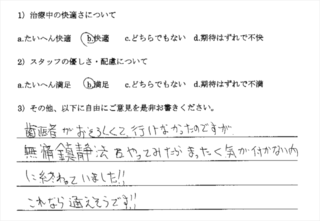 1) 治療中の快適さについて
a.たいへん快適 b.快適 c.どちらでもない d.期待はずれで不快
2) スタッフの優しさ・配慮について
a.たいへん満足 b.満足 c.どちらでもない d.期待はずれで不満
3) その他、以下に自由にご意見を是非お書きください。
歯医者がおそろしくて、行けなかったのですが
無痛鎮静法をやってみたらまったく気が付かない内
に終わっていました!!
これなら通えそうです!!